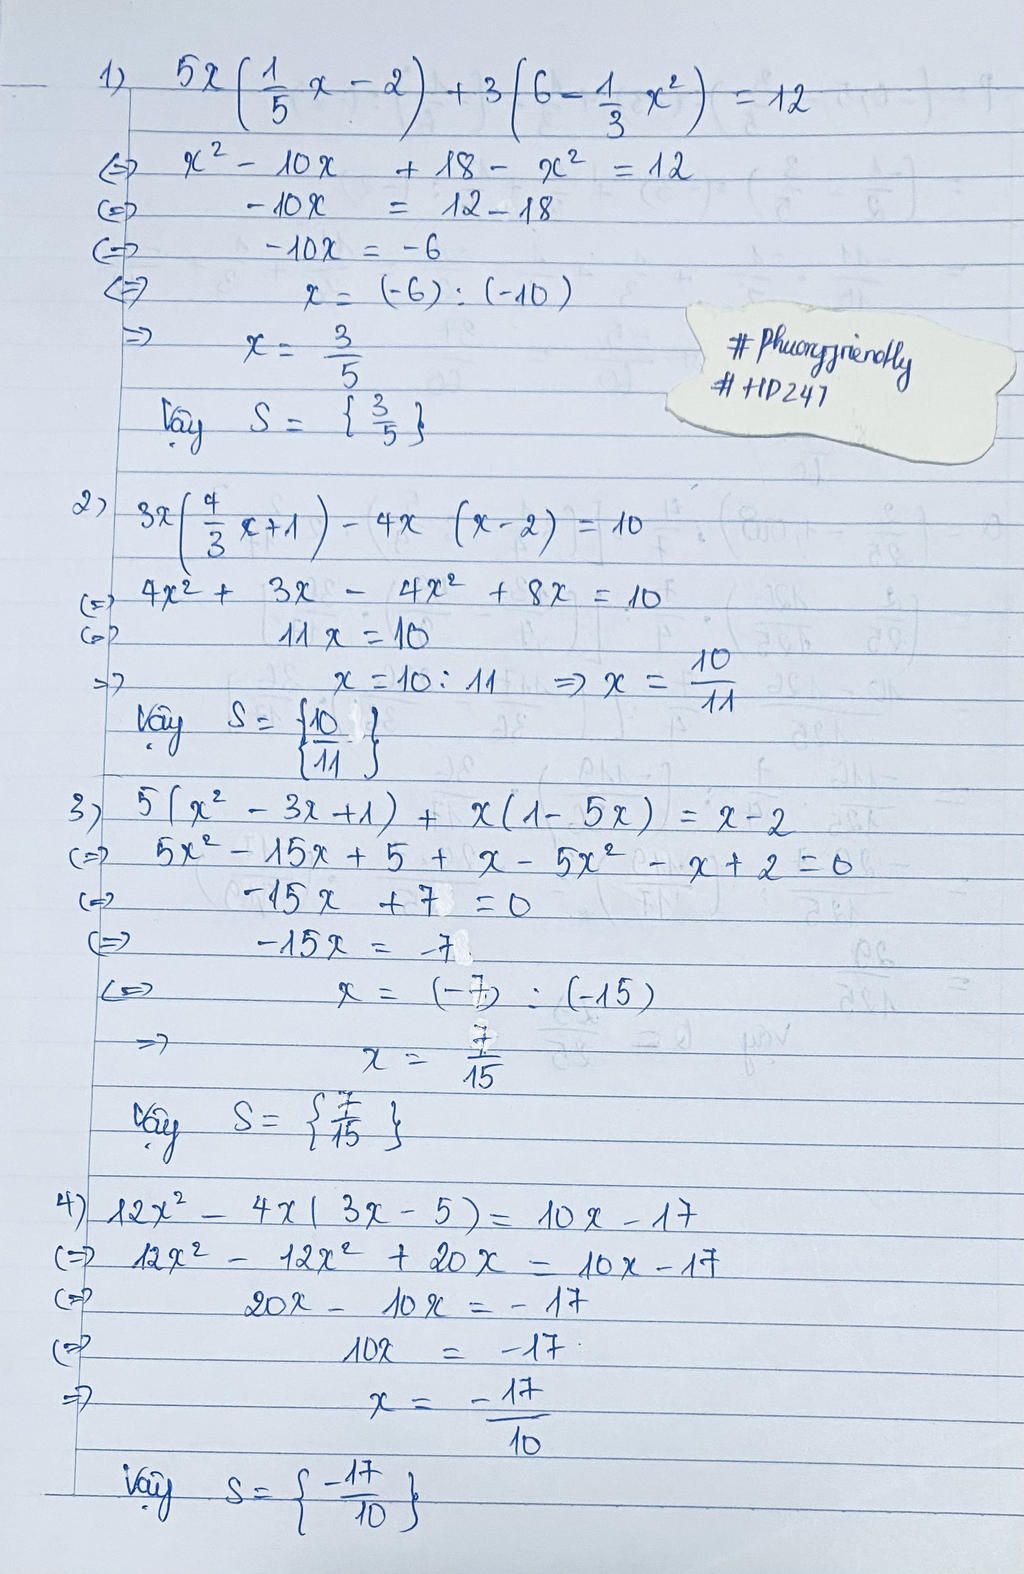 1) 5x(1/5 x - 2) + 3(6 - 1/3 x²) = 12
<=> x² - 10x + 18 - x² = 12
<=> -10x = 12 - 18
<=> -10x = -6
<=> x = (-6) : (-10)
=> x = 3/5
Vậy S = {3/5}
#Phuongfriendly
#HD247
2) 3x(4/3 x + 1) - 4x (x - 2) = 10
<=> 4x² + 3x - 4x² + 8x = 10
<=> 11x = 10
=> x = 10 : 11 => x = 10/11
Vậy S = {10/11}
3) 5(x² - 3x + 1) + x(1 - 5x) = x - 2
<=> 5x² - 15x + 5 + x - 5x² - x + 2 = 0
<=> -15x + 7 = 0
<=> -15x = -7
<=> x = (-7) : (-15)
=> x = 7/15
Vậy S = {7/15}
4) 12x² - 4x(3x - 5) = 10x - 17
<=> 12x² - 12x² + 20x = 10x - 17
<=> 20x - 10x = -17
<=> 10x = -17
=> x = -17/10
Vậy S = {-17/10}